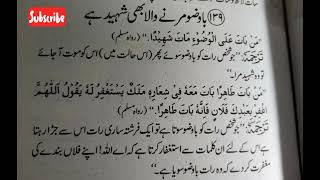 Subscribe
(۱۳۹) باوضو مرنے والا بھی شہید ہے
"مَنْ بَاتَ عَلَى الْوُضُوْءِ مَاتَ شَهِيْدًا." (رواہ مسلم)
تَرجَمَہ: "جو شخص رات کو باوضو سوئے پھر (اس حالت میں) اس کو موت آجائے
تو وہ شہید مرا۔"
"مَنْ بَاتَ طَاهِرًا بَاتَ مَعَهُ فِيْ شِعَارِهٖ مَلَكٌ يَسْتَغْفِرُ لَهُ يَقُوْلُ اَللّٰهُمَّ
اغْفِرْ لِعَبْدِكَ فُلَانٍ فَاِنَّهُ بَاتَ طَاهِرًا." (رواہ مسلم)
تَرجَمَہ: "جو شخص رات کو باوضو سوتا ہے تو ایک فرشتہ ساری رات اس سے جڑا رہتا
ہے اس کے لئے ان کلمات سے استغفار کرتا ہے کہ اے اللہ! اپنے فلاں بندے کی
مغفرت کردے کہ وہ رات باوضو سویا ہے۔"